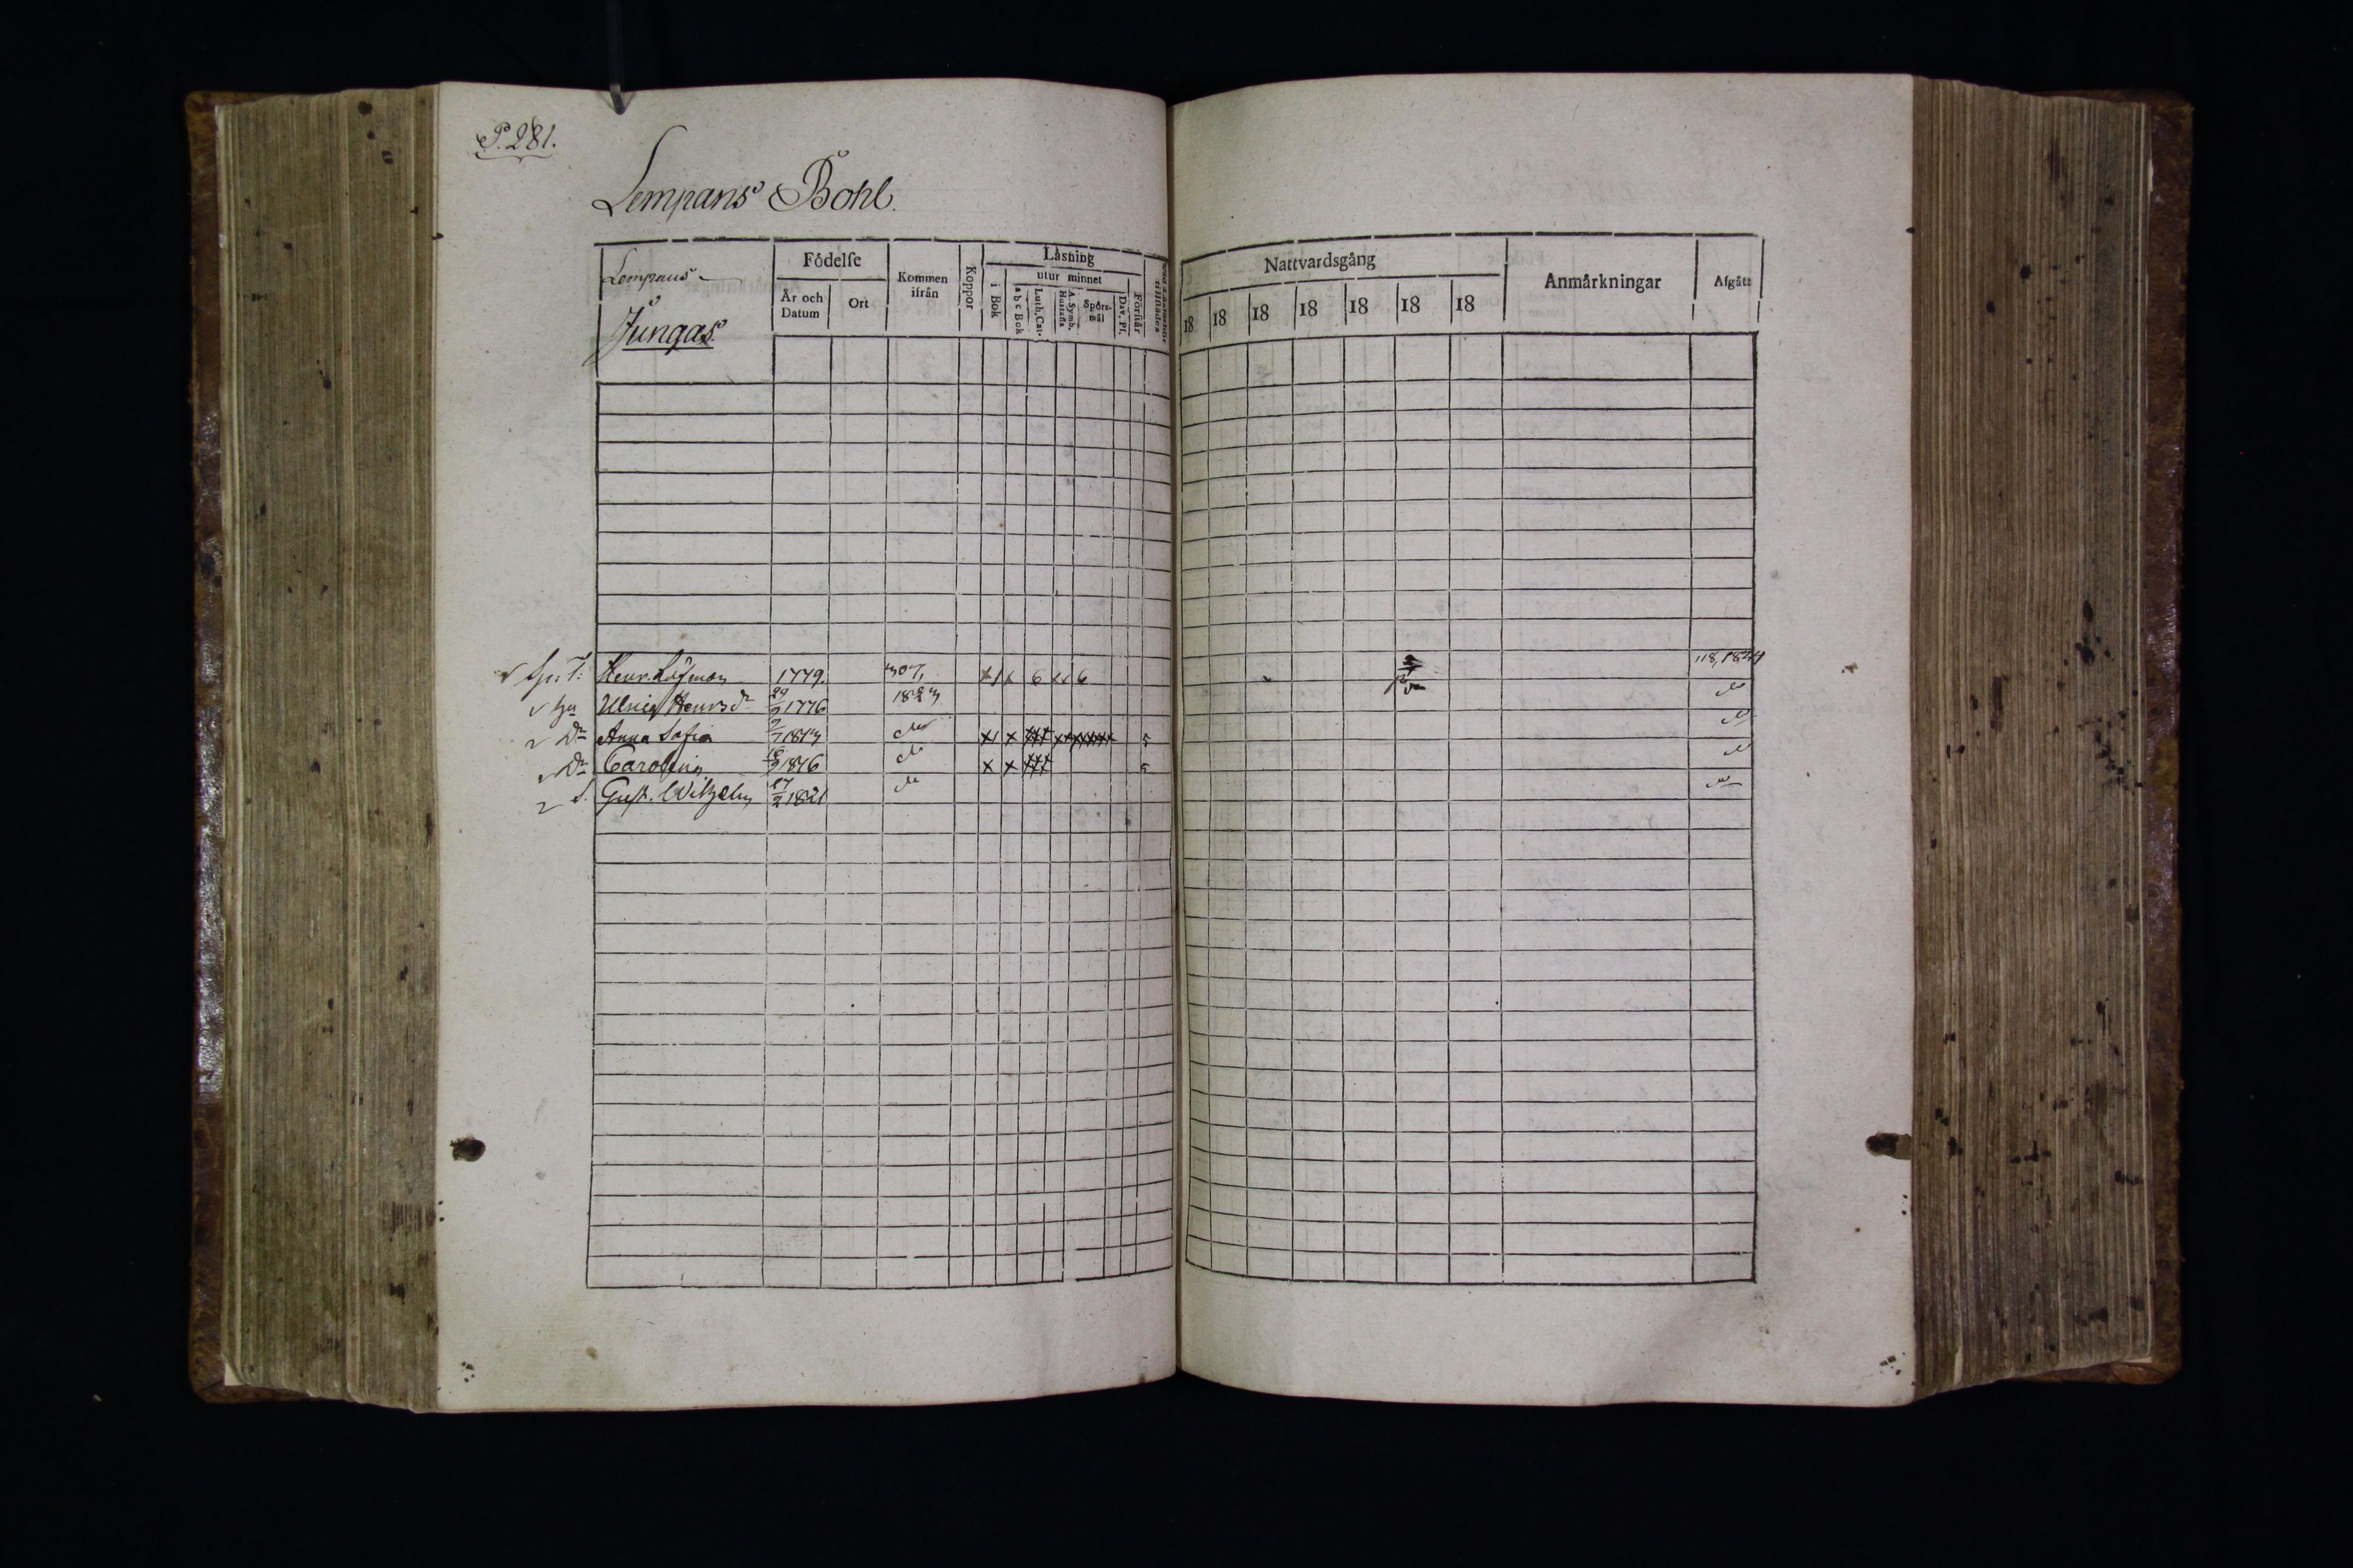 P. 281.
Lempans Bohl.
Lempans
Jungas.
Födelse
År och Datum
Ort
Kommen ifrån
Koppor
Läsning
i Bok
utur minnet
a b c Bok
Luth. Cat.
A. Symb. Hustafla
Spörsmål
Dav. Ps.
Förstår
Nattvardsgång
18 18 18 18 18 18 18
Anmärkningar
Afgått
Henr. Löfman 1779. 307, x 6 6 118, 1824
hu Ulrica Henrsdr 29/9 1776 1823 do
Dr Anna Sofia 1813 do x x 5 do
Dr Carolina 16/9 1816 do x x 5 do
S. Gust. Wilhelm 27/2 1821 do do